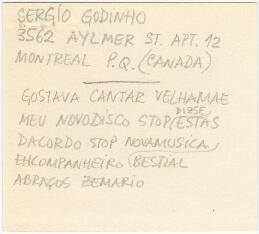 SERGIO GODINHO
3562 AYLMER ST. APT. 12
MONTREAL P.Q. (CANADA)
GOSTAVA CANTAR VELHAMAE
DIZSE
MEU NOVODISCO STOP (ESTAS
DACORDO STOP NOVAMUSICA
COMPANHEIRO (BESTIAL
ABRAÇOS ZEMARIO